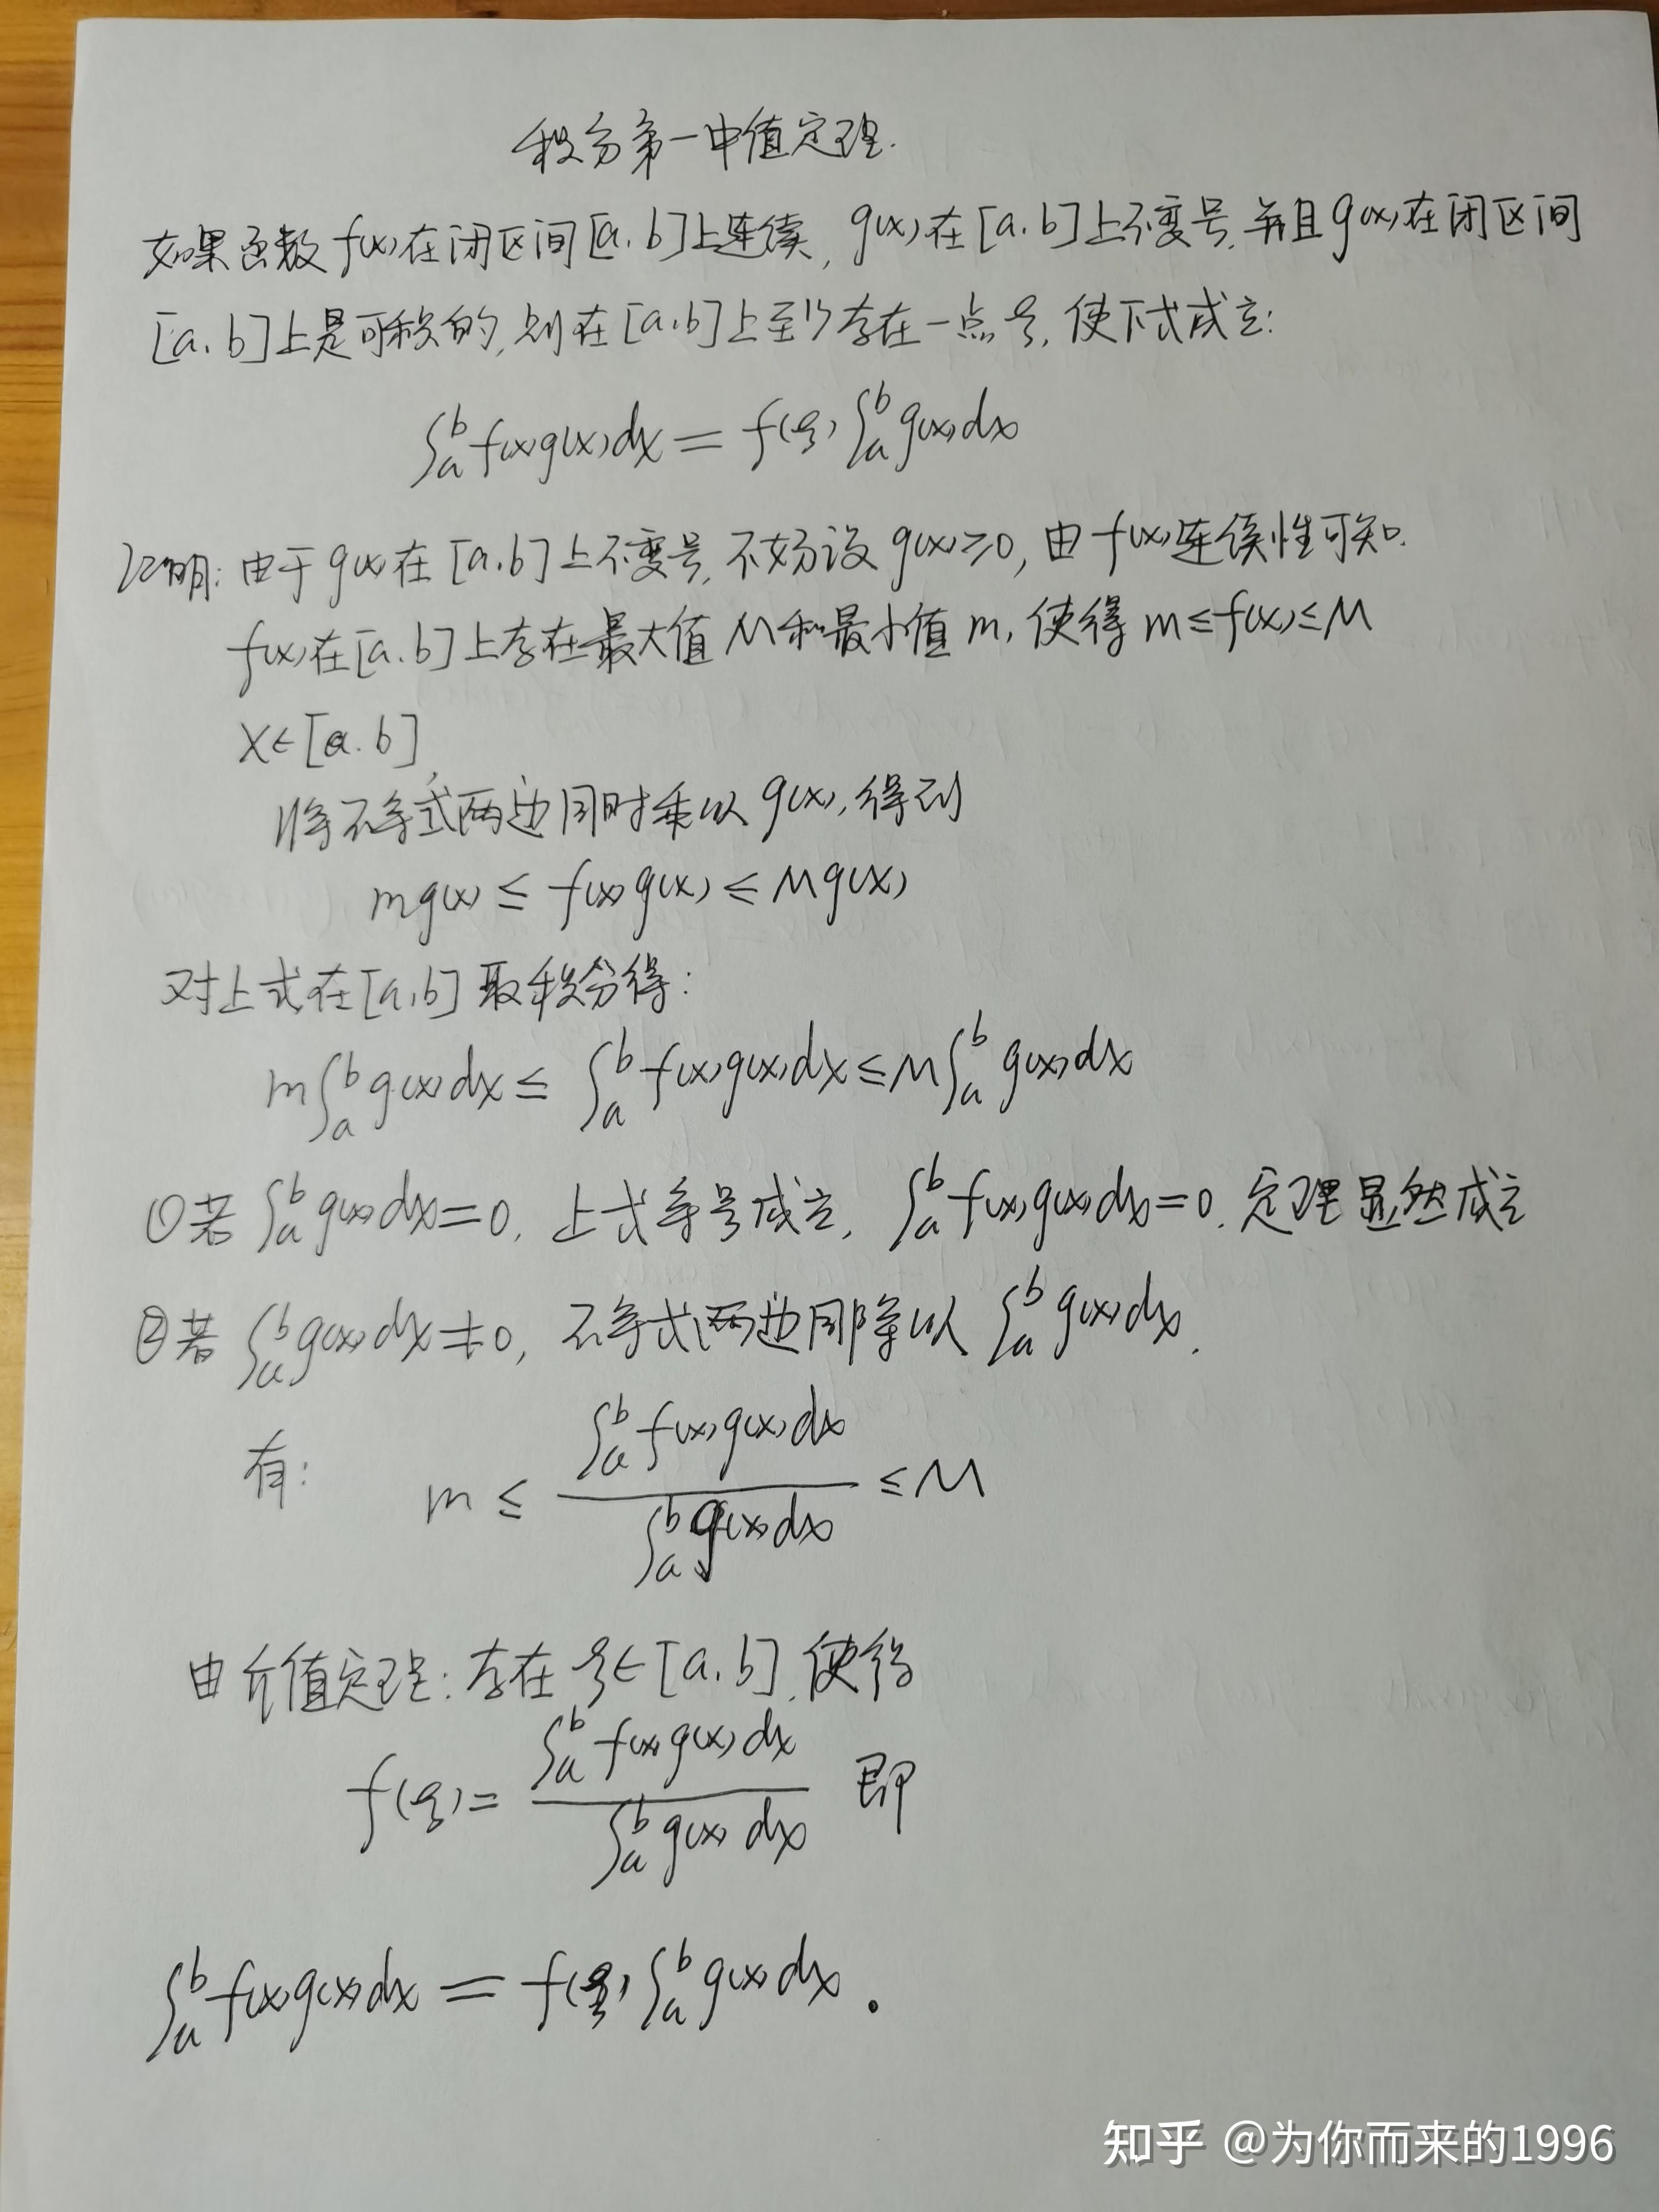 积分第一中值定理.
如果函数 f(x) 在闭区间 [a,b] 上连续, g(x) 在 [a,b] 上不变号, 并且 g(x) 在闭区间
[a,b] 上是可积的, 则在 [a,b] 上至少存在一点 ξ, 使下式成立:
∫ₐᵇ f(x)g(x)dx = f(ξ) ∫ₐᵇ g(x)dx
证明: 由于 g(x) 在 [a,b] 上不变号, 不妨设 g(x)≥0, 由 f(x) 连续性可知.
f(x) 在 [a,b] 上存在最大值 M 和最小值 m, 使得 m≤f(x)≤M
x∈[a,b],
将不等式两边同时乘以 g(x), 得到
mg(x) ≤ f(x)g(x) ≤ Mg(x)
对上式在 [a,b] 取积分得:
m∫ₐᵇ g(x)dx ≤ ∫ₐᵇ f(x)g(x)dx ≤ M∫ₐᵇ g(x)dx
①若 ∫ₐᵇ g(x)dx=0, 上式等号成立, ∫ₐᵇ f(x)g(x)dx=0. 定理显然成立
②若 ∫ₐᵇ g(x)dx≠0, 不等式两边同除以 ∫ₐᵇ g(x)dx.
有: m ≤ ∫ₐᵇ f(x)g(x)dx / ∫ₐᵇ g(x)dx ≤ M
由介值定理: 存在 ξ∈[a,b], 使得
f(ξ) = ∫ₐᵇ f(x)g(x)dx / ∫ₐᵇ g(x)dx 即
∫ₐᵇ f(x)g(x)dx = f(ξ) ∫ₐᵇ g(x)dx.
知乎 @为你而来的1996